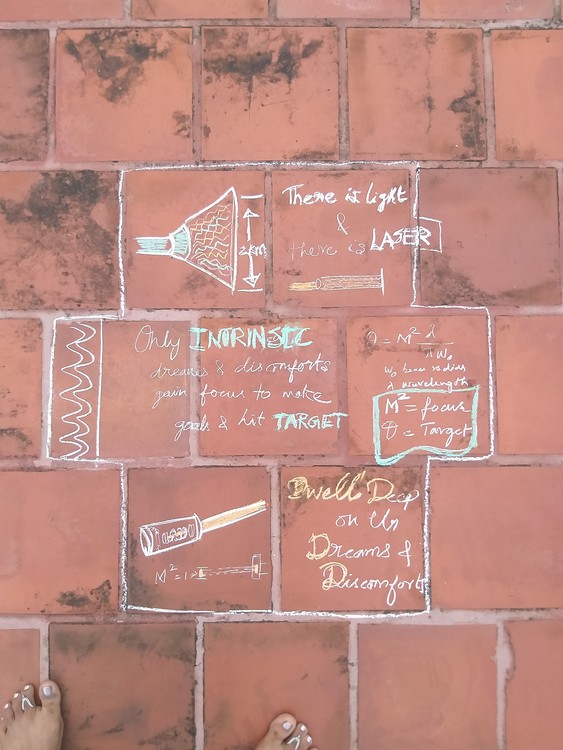 There is light
&
there is LASER
2km
Only INTRINSIC
dreams & discomforts
gain focus to make
goals & hit TARGET
θ = M² λ
π W₀
W₀ beam radius
λ wavelength
M² = focus
θ = Target
M² = 1
Dwell Deep
on Ur
Dreams &
Discomfort